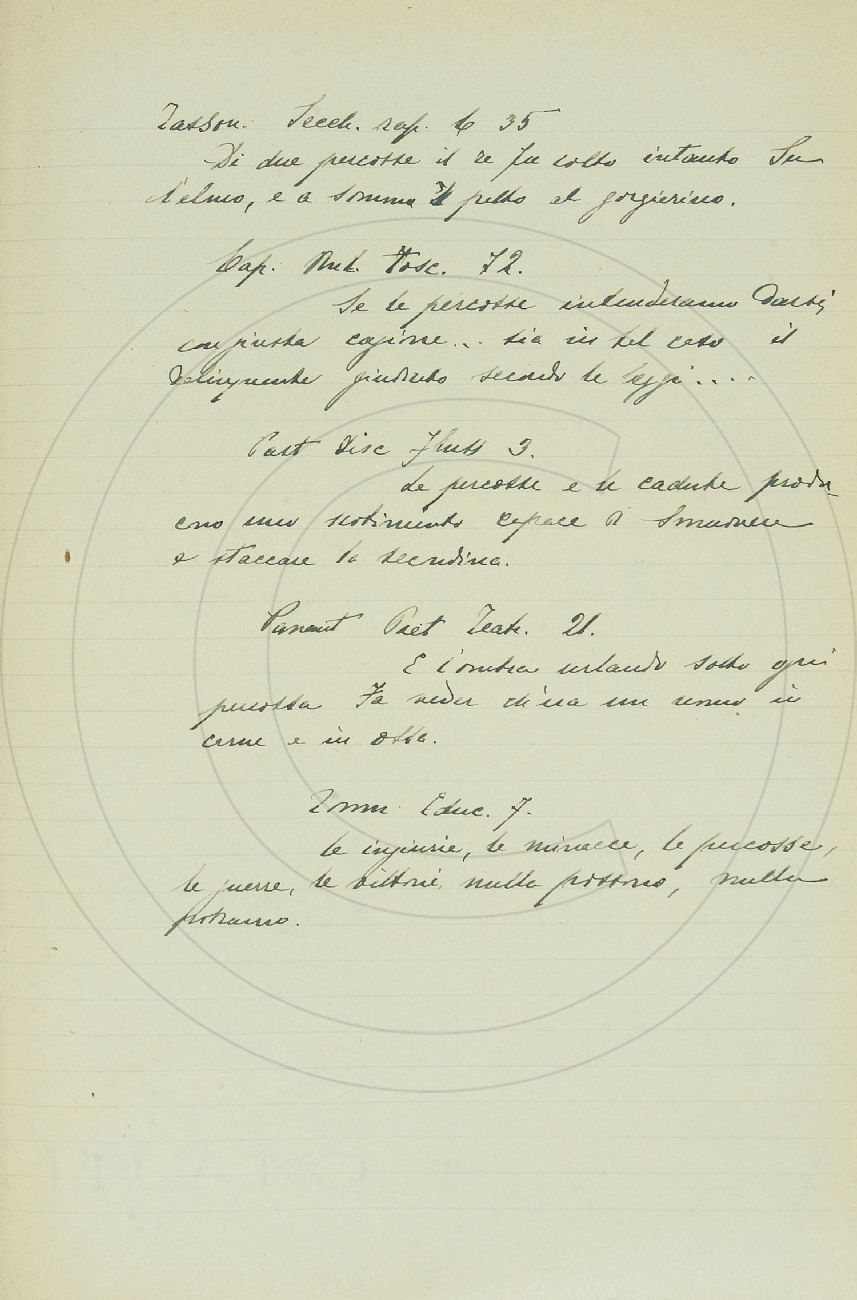 Tasson. Secch. rap. 6 35
Di due percosse il re fu colto intanto Su
l'elmo, e a sommo il petto al gorgierino.
Cap. Ant. Tosc. 72.
Se le percosse intenderanno darsi,
con giusta cagione... sia in tal caso il
delinquente giudicato secondo le leggi....
Past Disc 3.
Le percosse e le cadute produ-
cono uno scotimento capace di smuovere
e staccare la secondina.
Panant Poet Teatr. 21.
E l'ombra urlando sotto ogni
percossa Fa veder ch'era un uomo in
carne e in ossa.
Tomm. Educ. 7.
le ingiurie, le minacce, le percosse,
le guerre, le vittorie, nulla possono, nulla
potranno.